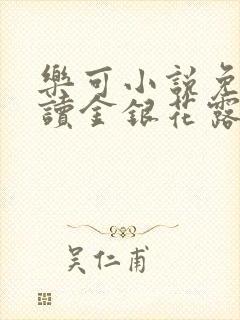 樂可小說免
讀金銀花露
吳仁甫